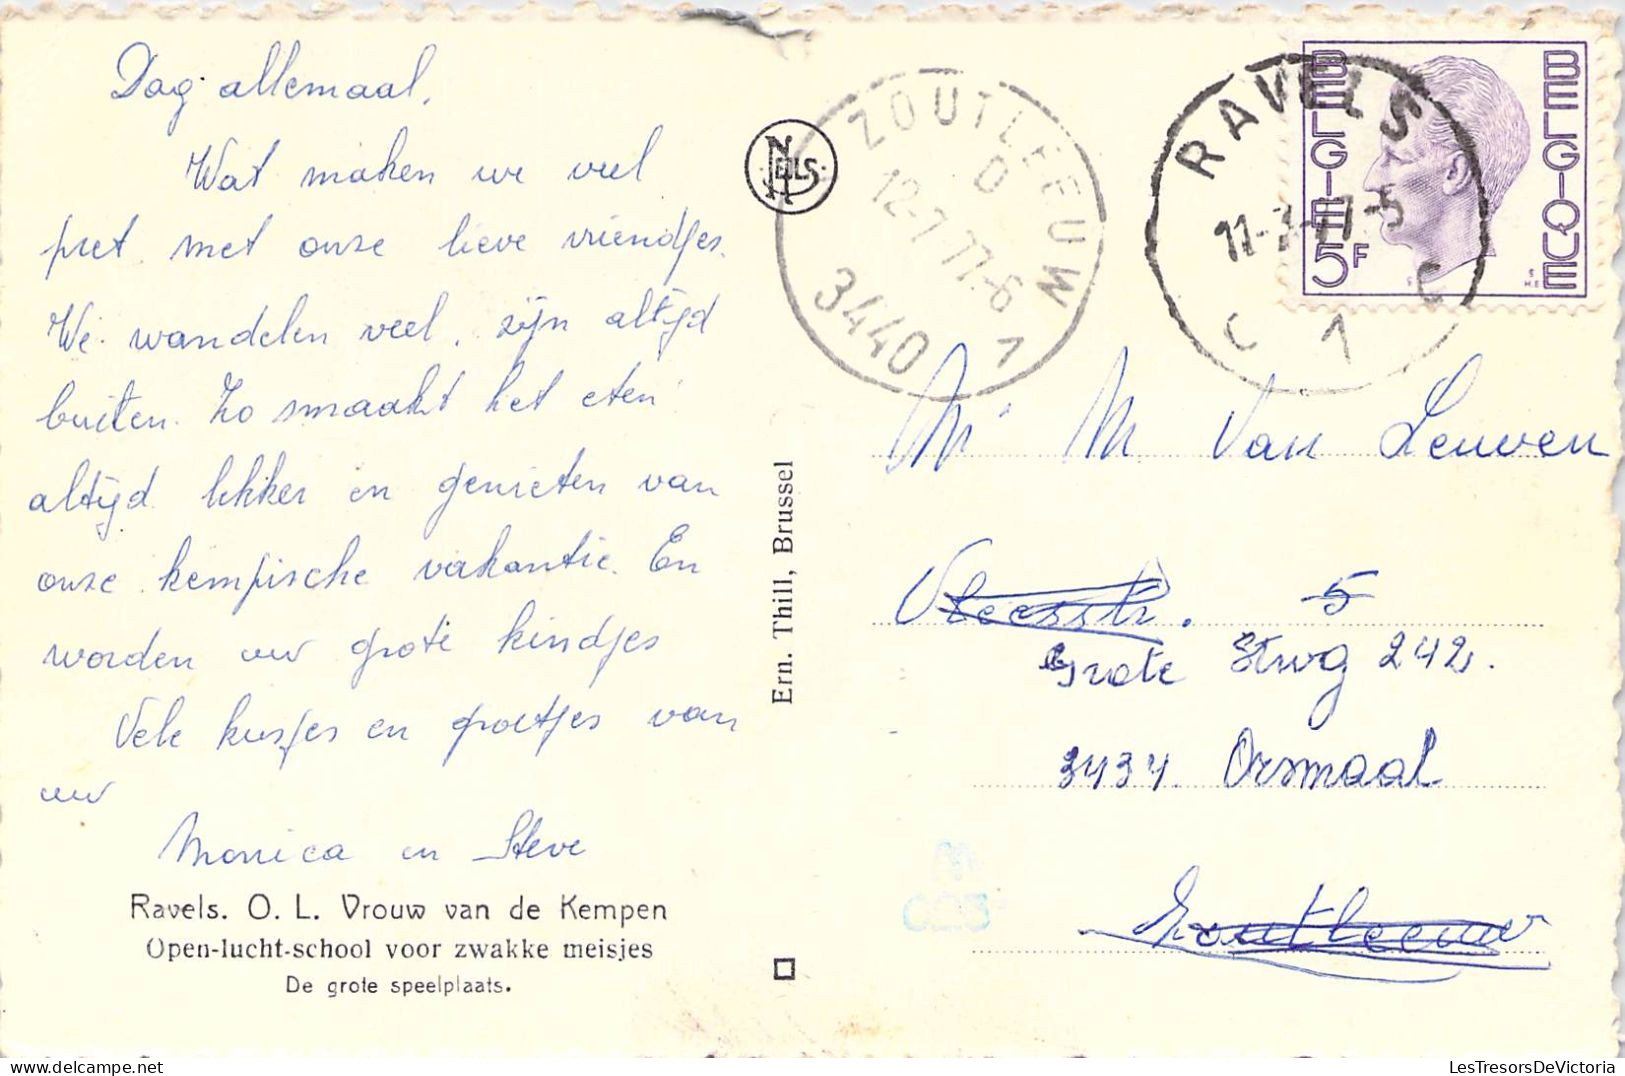 Dag allemaal,
Wat maken we veel
pret met onze lieve vriendjes.
We wandelen veel, zijn altijd
buiten. Zo smaakt het eten
altijd lekker en genieten van
onze kempische vakantie. En
worden uw grote kindjes
Vele kusjes en groetjes van
uw
Monica en Steve
Ravels. O. L. Vrouw van de Kempen
Open-lucht-school voor zwakke meisjes
De grote speelplaats.
NELS
Ern. Thill, Brussel
ZOUTLEEUW
D
12-7-77-6
3440
1
RAVELS
11-3-77-5
C 1 C
BELGIË BELGIQUE
5F
Mr M Van Leuven
Vleesstr. 5
Grote Stwg 242.
3434. Orsmaal
Zoutleeuw
LesTresorsDeVictoria